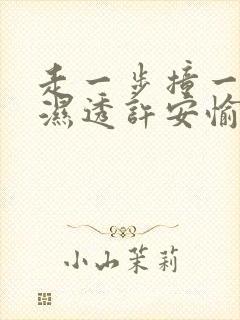 走一步撞一
濕透許安愉
小山茉莉